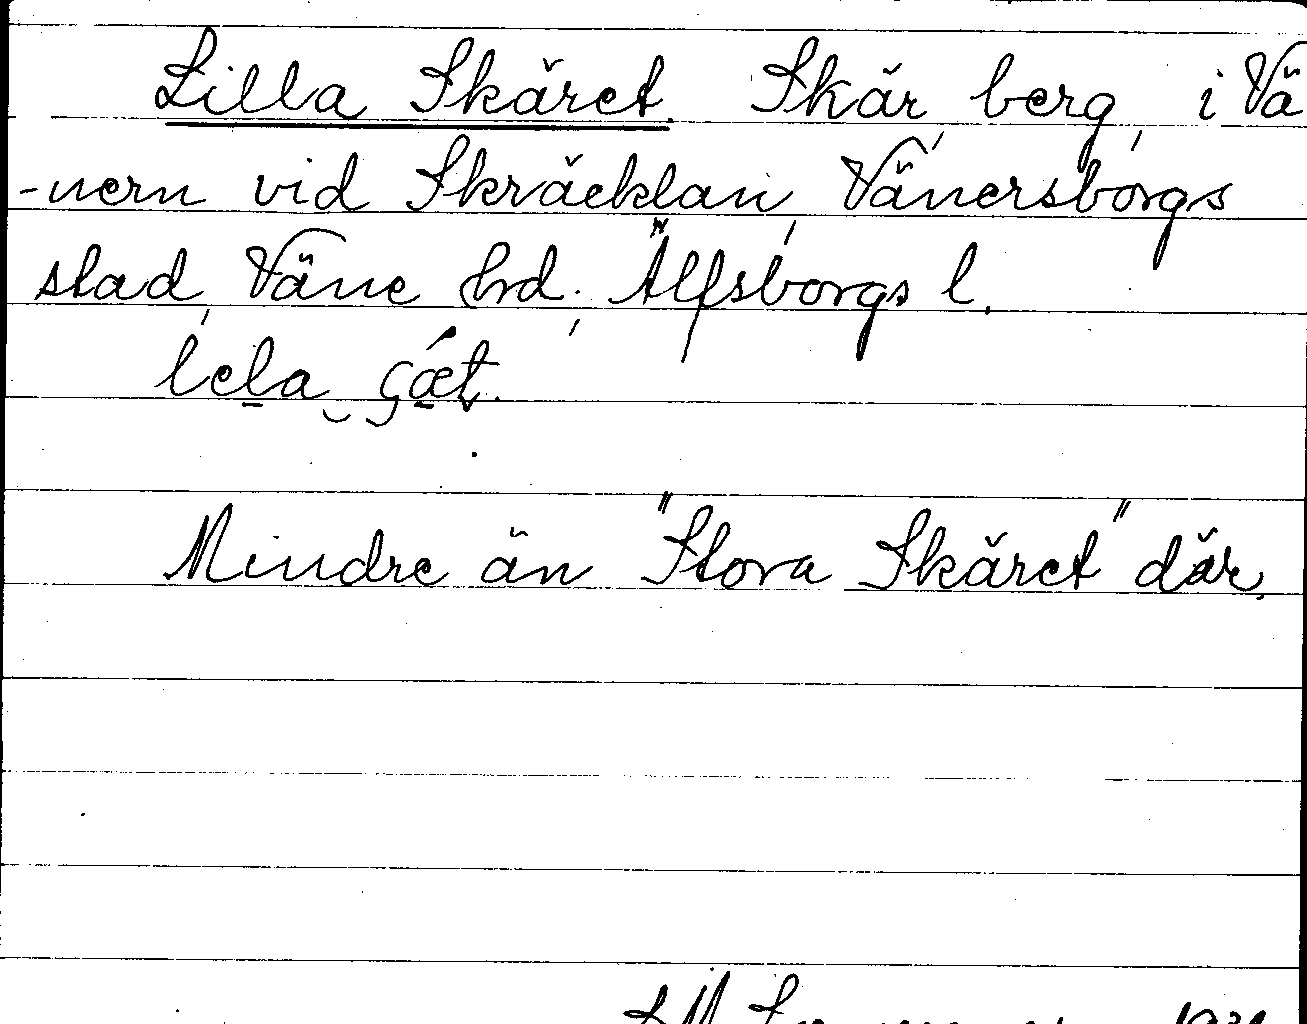 Lilla Skäret. Skär, berg, i Vä
-nern vid Skräcklan, Vänersborgs
stad, Väne hrd, Älfsborgs l.
Mindre än "Stora Skäret" där.